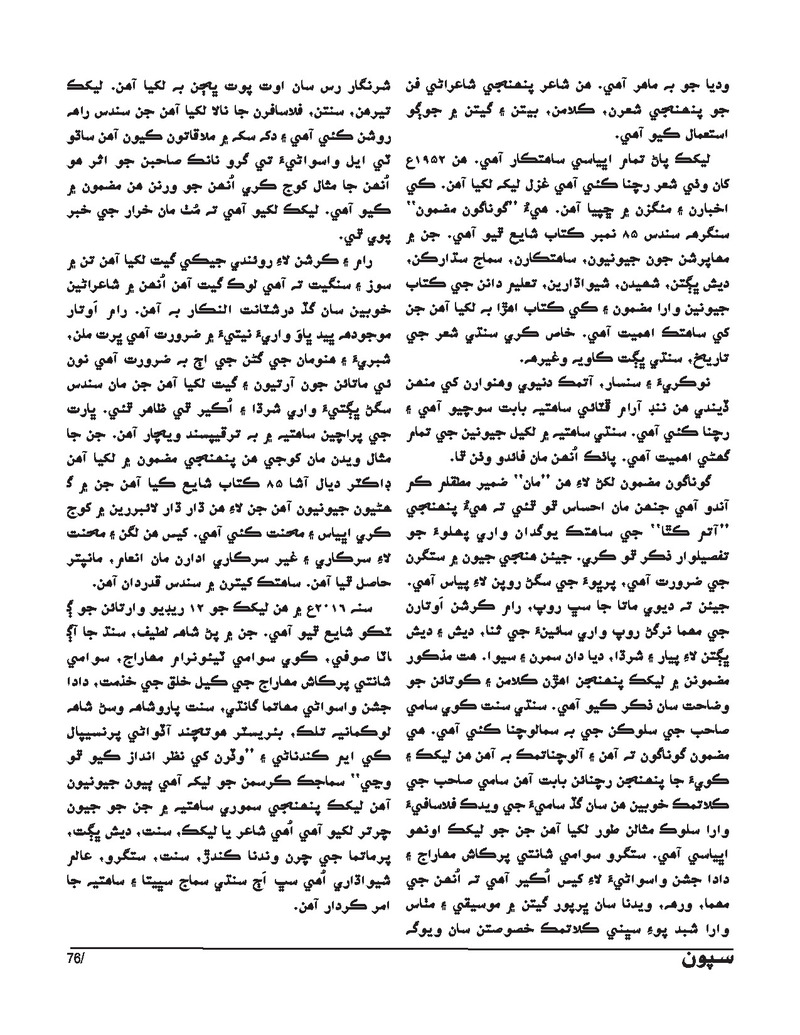 وديا جو به ماهر آهي. هن شاعر پنهنجي شاعراڻي فن
جو پنهنجي شعرن، ڪلامن، بيتن ۽ گيتن ۾ جوڳو
استعمال ڪيو آهي.
ليکڪ پاڻ تمام اڀياسي ساهتڪار آهي. هن ۱۹۵۲ع
کان وٺي شعر رچنا ڪئي آهي غزل ليک لکيا آهن. ڪي
اخبارن ۽ مئگزن ۾ ڇپيا آهن. هيءُ ”گوناگون مضمون“
سنگرهه سندس ۸۵ نمبر ڪتاب شايع ٿيو آهي. جن ۾
مهاپرشن جون جيونيون، ساهتڪارن، سماج سڌارڪن،
ديش ڀڳتن، شهيدن، شيواڌارين، تعليم دانن جي ڪتاب
جيونين وارا مضمون ۽ ڪي ڪتاب اهڙا به لکيا آهن جن
کي ساهتڪ اهميت آهي. خاص ڪري سنڌي شعر جي
تاريخ، سنڌي ڀڳت ڪاويه وغيرهه.
نوڪريءَ ۽ سنسار، آتمڪ دنيوي وهنوارن کي منهن
ڏيندي هن ننڊ آرام ڦٽائي ساهتيه بابت سوچيو آهي ۽
رچنا ڪئي آهي. سنڌي ساهتيه ۾ لکيل جيونين جي تمام
گهڻي اهميت آهي. پاٺڪ اُنهن مان فائدو وٺن ٿا.
گوناگون مضمون لکڻ لاءِ هن ”مان“ ضمير مطقلم ڪم
آندو آهي جنهن مان احساس ٿو ٿئي ته هيءُ پنهنجي
”آتم ڪٿا“ جي ساهتڪ يوگدان واري پهلوءَ جو
تفصيلوار ذڪر ٿو ڪري. جيئن منهنجي جيون ۾ ستگرن
جي ضرورت آهي، پرڀوءَ جي سگڻ روپن لاءِ پياس آهي.
جيئن ته ديوي ماتا جا سڀ روپ، رام ڪرشن اَوتارن
جي مهما نرگڻ روپ واري سائينءَ جي ثنا، ديش ۽ ديش
ڀڳتن لاءِ پيار ۽ شرڌا، ديا دان سمرن ۽ سيوا. هت مذڪور
مضمونن ۾ ليکڪ پنهنجن اهڙن ڪلامن ۽ ڪوتائن جو
وضاحت سان ذڪر ڪيو آهي. سنڌي سنت ڪوي سامي
صاحب جي سلوڪن جي به سمالوچنا ڪئي آهي. هي
مضمون گوناگون ته آهن ۽ آلوچناتمڪ به آهن هن ليکڪ ۽
ڪويءَ جا پنهنجن رچنائن بابت آهن سامي صاحب جي
ڪلاتمڪ خوبين هن سان گڏ ساميءَ جي ويدڪ فلاسافيءَ
وارا سلوڪ مثالن طور لکيا آهن جن جو ليکڪ اونهو
اڀياسي آهي. ستگرو سوامي شانتي پرڪاش مهاراج ۽
دادا جشن واسواڻيءَ لاءِ کيس اُڪير آهي ته اُنهن جي
مهما، ورهه، ويدنا سان ڀرپور گيتن ۾ موسيقي ۽ مٺاس
وارا شبد پوءِ سڀني ڪلاتمڪ خصوصتن سان ويوگه
شرنگار رس سان اوت پوت ڀڄن به لکيا آهن. ليکڪ
تيرهن، سنتن، فلاسافرن جا نالا لکيا آهن جن سندس راهه
روشن ڪئي آهي ۽ دک سک ۾ ملاقاتون ڪيون آهن ساڌو
ٽي ايل واسواڻيءَ تي گرو نانڪ صاحبن جو اثر هو
اُنهن جا مثال کوج ڪري اُنهن جو ورنن هن مضمون ۾
ڪيو آهي. ليکڪ لکيو آهي ته مُٺ مان خرار جي خبر
پوي ٿي.
رام ۽ ڪرشن لاءِ روئندي جيڪي گيت لکيا آهن تن ۾
سوز ۽ سنگيت ته آهي لوڪ گيت آهن اُنهن ۾ شاعراڻين
خوبين سان گڏ درشٽانت النڪار به آهن. رام اَوتار
موجودهه ڀيد ڀاوَ واريءَ نيتيءَ ۾ ضرورت آهي ڀرت ملن،
شبريءَ ۽ هنومان جي گڻن جي اڄ به ضرورت آهي نون
ئي ماتائن جون آرتيون ۽ گيت لکيا آهن جن مان سندس
سگڻ ڀڳتيءَ واري شرڌا ۽ اُڪير ٿي ظاهر ٿئي. ڀارت
جي پراچين ساهتيه ۾ به ترقيپسند ويچار آهن. جن جا
مثال ويدن مان کوجي هن پنهنجي مضمون ۾ لکيا آهن
ڊاڪٽر ديال آشا ۸۵ ڪتاب شايع ڪيا آهن جن ۾ گ
هڻيون جيونيون آهن جن لاءِ هن ڌار ڌار لائبررين ۾ کوج
ڪري اڀياس ۽ محنت ڪئي آهي. کيس هن لگن ۽ محنت
لاءِ سرڪاري ۽ غير سرڪاري ادارن مان انعام، مانپتر
حاصل ٿيا آهن. ساهتڪ کيترن ۾ سندس قدردان آهن.
سنه ۲۰۱۶ع ۾ هن ليکڪ جو ۱۲ ريڊيو وارتائن جو ڳ
ٽڪو شايع ٿيو آهي. جن ۾ پڻ شاهه لطيف، سنڌ جا آڳ
اٽا صوفي، ڪوي سوامي ٽيئونرام مهاراج، سوامي
شانتي پرڪاش مهاراج جي ڪيل خلق جي خذمت، دادا
جشن واسواڻي مهاتما گانڌي، سنت پاروشاهه وسڻ شاهه
لوڪمانيه تلڪ، بئريسٽر هوتچند آڏواڻي پرنسيپال
ڪي ايم ڪندناڻي ۽ ”وڏرن کي نظر انداز ڪيو ٿو
وڃي“ سماجڪ ڪرسمن جو ليک آهي ٻيون جيونيون
آهن ليکڪ پنهنجي سموري ساهتيه ۾ جن جو جيون
چرتر لکيو آهي اُهي شاعر يا ليکڪ، سنت، ديش ڀڳت،
پرماتما جي چرن وندنا ڪندڙ، سنت، ستگرو، عالم
شيواڌاري اُهي سڀ اَڄ سنڌي سماج سڀيتا ۽ ساهتيه جا
امر ڪردار آهن.
سپون
76/